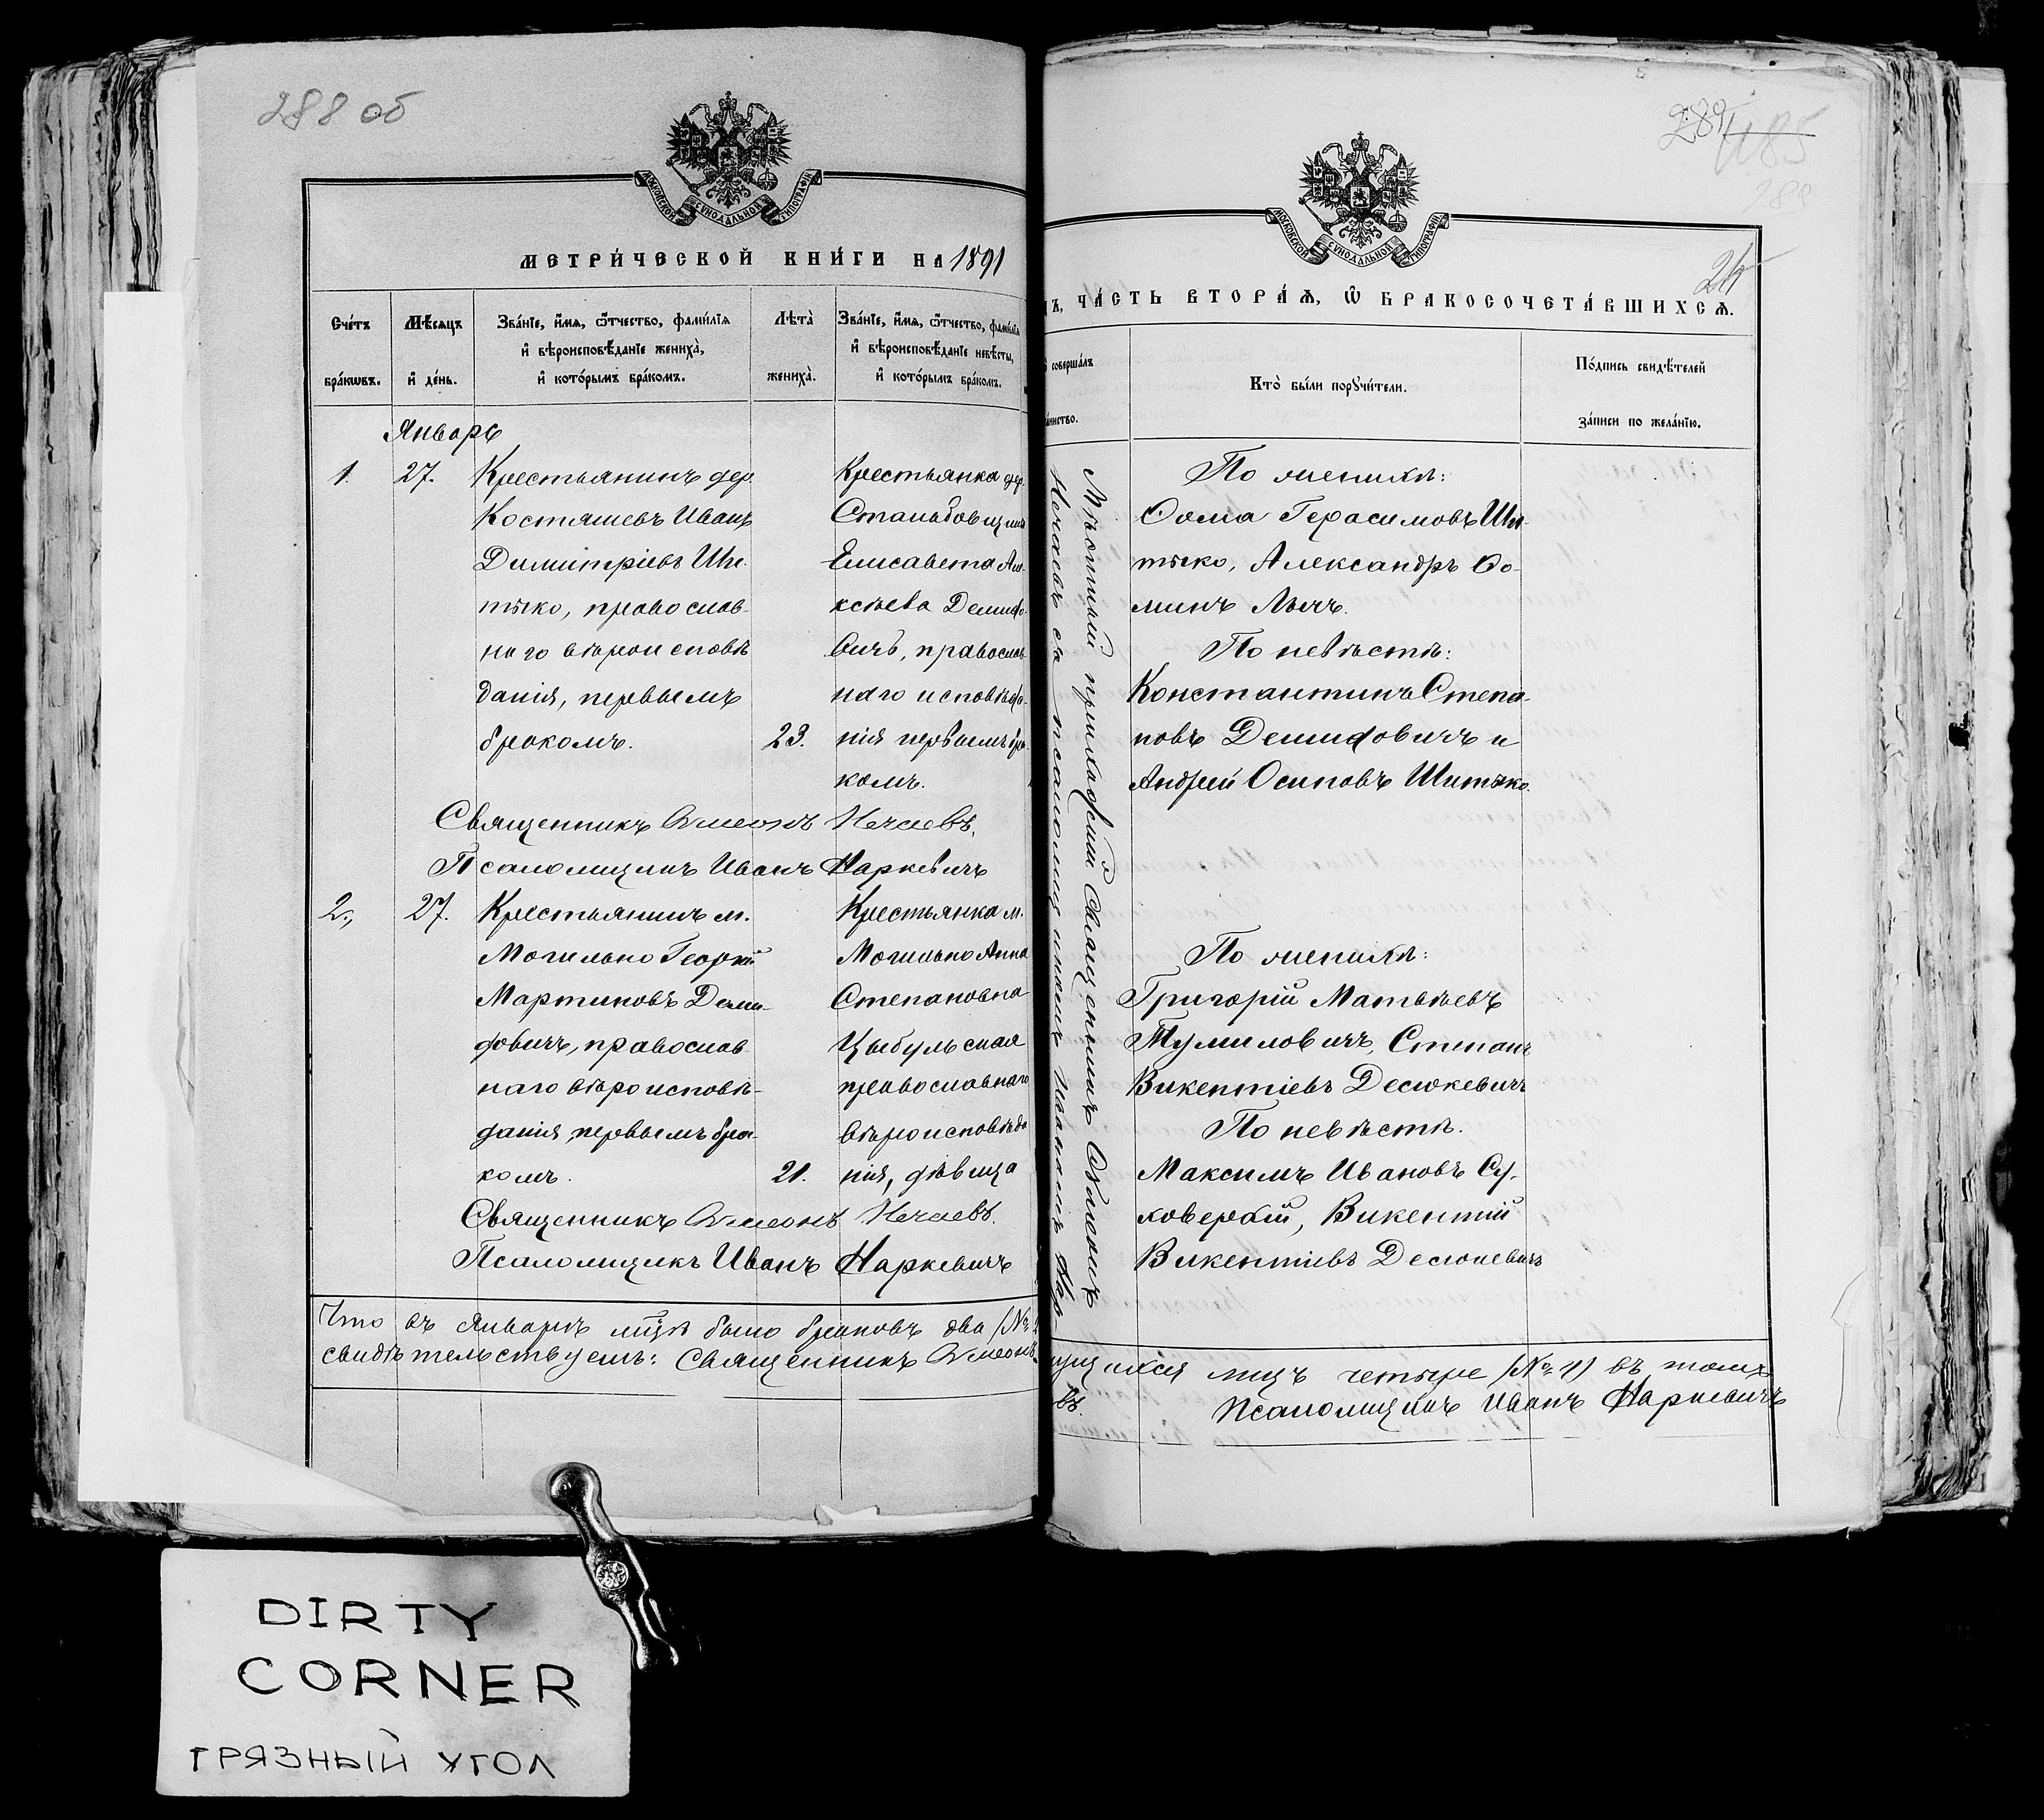 288 об
МОСКОВСКОЙ СѴНОДАЛЬНОЙ ТИПОГРАФІИ
МЕТРИ́ЧЕСКОЙ КНИ́ГИ НА 1891
Сче́тъ бра́кѡвъ.
Мѣ́сяцъ и҆ де́нь.
Зва́нїе, и҆́мѧ, ѻ҆́тчество, фамѝлїѧ
и҆ вѣроисповѣ́данїе жениха̀,
и҆ кото́рымъ бра́комъ.
Лѣта̀ жениха̀.
Зва́нїе, и҆́мѧ, ѻ҆́тчество, фамѝлїѧ
и҆ вѣроисповѣ́данїе невѣ́сты,
и҆ кото́рымъ бра́комъ.
Январь
1.
27.
Крестьянинъ дер.
Костяшевъ Иванъ
Димитріевъ Ши-
тыко, православ-
наго вѣроисповѣ
данія, первымъ
бракомъ.
23.
Крестьянка дер.
Елисавета Але-
ксѣева Демидо-
вичъ, православ-
наго исповѣда-
нія первымъ бра-
комъ.
Священникъ Симеонъ Нечаевъ.
Псаломщикъ Иванъ Наркевичъ
2.,
27.
Крестьянинъ м.
Могильно Георгій
Мартиновъ Деми-
довичъ, православ-
наго вѣроисповѣ-
данія, первымъ бра-
комъ.
21.
Крестьянка м.
Могильно Анна
Степановна
Цыбульская
православнаго
вѣроисповѣда
нія, дѣвица
Священникъ Симеонъ Нечаевъ.
Псаломщикъ Иванъ Наркевичъ
Что въ Январѣ мцѣ было браковъ два (№ 2
свидѣтельствуемъ: Священникъ Симеонъ
289
185
189
МОСКОВСКОЙ СѴНОДАЛЬНОЙ ТИПОГРАФІИ
ЧА́СТЬ ВТОРА́Ѧ, Ѡ҆ БРАКОСОЧЕТА́ВШИХСѦ.
совершалъ
Кто̀ бы́ли порꙋчи́тели.
По́дпись свидѣ́телей
за́писи по жела́нїю.
Мѣстный приходскій Священникъ Симеонъ
Нечаевъ съ псаломщикомъ Иваномъ Нар.
По женихѣ:
Ѳома Герасимовъ Ши-
тыко, Александръ Ѳо-
минъ Лычъ.
По невѣстѣ:
Константинъ Степа-
новъ Демидовичъ и
Андрей Осиповъ Шитыко.
По женихѣ:
Григорій Матвѣевъ
Тумиловичъ, Степанъ
Викентіевъ Десюкевичъ
По невѣстѣ.
Максимъ Ивановъ Су-
ховерхій, Викентій
Викентіевъ Десюкевичъ
щихся лицъ четыре (№ 4) въ томъ
въ. Псаломщикъ Иванъ Наркевичъ
DIRTY
CORNER
ГРЯЗНЫЙ УГОЛ